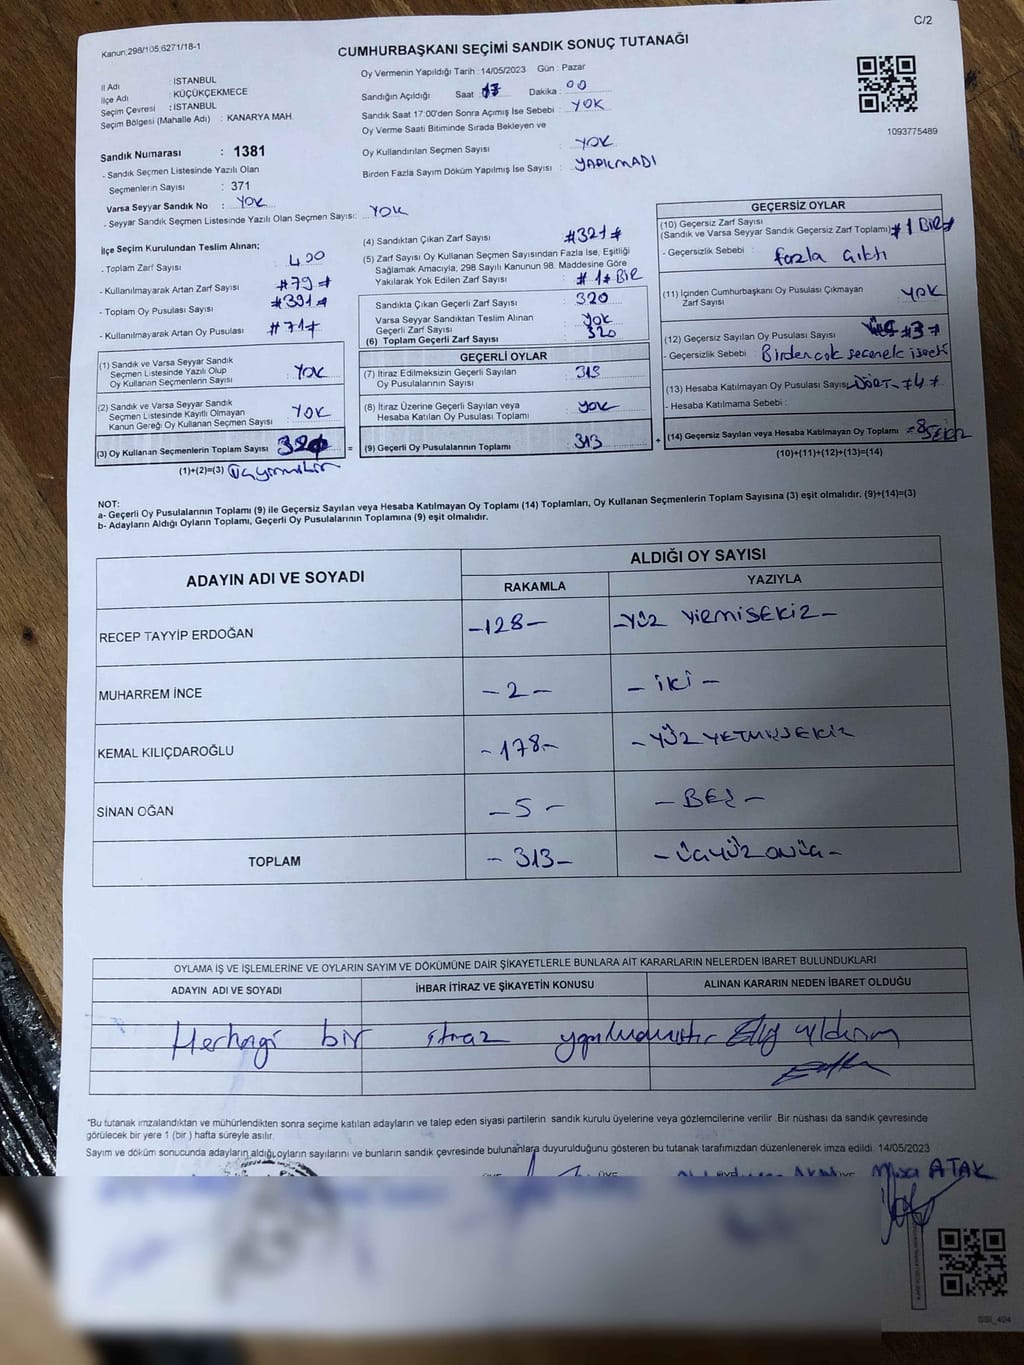 C/2
Kanun;298/105;6271/18-1
CUMHURBAŞKANI SEÇİMİ SANDIK SONUÇ TUTANAĞI
İl Adı : İSTANBUL
İlçe Adı : KÜÇÜKÇEKMECE
Seçim Çevresi : İSTANBUL
Seçim Bölgesi (Mahalle Adı) : KANARYA MAH.
Sandık Numarası : 1381
- Sandık Seçmen Listesinde Yazılı Olan
Seçmenlerin Sayısı : 371
Varsa Seyyar Sandık No : YOK
- Seyyar Sandık Seçmen Listesinde Yazılı Olan Seçmen Sayısı: YOK
Oy Vermenin Yapıldığı Tarih : 14/05/2023 Gün : Pazar
Sandığın Açıldığı Saat 17 Dakika : 00
Sandık Saat 17:00'den Sonra Açımış İse Sebebi : YOK
Oy Verme Saati Bitiminde Sırada Bekleyen ve
Oy Kullandırılan Seçmen Sayısı : YOK
Birden Fazla Sayım Döküm Yapılmış İse Sayısı : YAPILMADI
1093775489
İlçe Seçim Kurulundan Teslim Alınan;
- Toplam Zarf Sayısı : 400
- Kullanılmayarak Artan Zarf Sayısı : #79#
- Toplam Oy Pusulası Sayısı : #391#
- Kullanılmayarak Artan Oy Pusulası : #71#
(1) Sandık ve Varsa Seyyar Sandık
Seçmen Listesinde Yazılı Olup
Oy Kullanan Seçmenlerin Sayısı : YOK
(2) Sandık ve Varsa Seyyar Sandık
Seçmen Listesinde Kayıtlı Olmayan
Kanun Gereği Oy Kullanan Seçmen Sayısı : YOK
(3) Oy Kullanan Seçmenlerin Toplam Sayısı =
(1)+(2)=(3)
(4) Sandıktan Çıkan Zarf Sayısı : #321#
(5) Zarf Sayısı Oy Kullanan Seçmen Sayısından Fazla İse, Eşitliği
Sağlamak Amacıyla, 298 Sayılı Kanunun 98. Maddesine Göre
Yakılarak Yok Edilen Zarf Sayısı : #1# BİR
Sandıkta Çıkan Geçerli Zarf Sayısı : 320
Varsa Seyyar Sandıktan Teslim Alınan
Geçerli Zarf Sayısı : YOK
(6) Toplam Geçerli Zarf Sayısı : 320
GEÇERLİ OYLAR
(7) İtiraz Edilmeksizin Geçerli Sayılan
Oy Pusulalarının Sayısı : 313
(8) İtiraz Üzerine Geçerli Sayılan veya
Hesaba Katılan Oy Pusulası Toplamı : YOK
(9) Geçerli Oy Pusulalarının Toplamı : 313 +
GEÇERSİZ OYLAR
(10) Geçersiz Zarf Sayısı
(Sandık ve Varsa Seyyar Sandık Geçersiz Zarf Toplamı) #1 BİR#
- Geçersizlik Sebebi : fazla çıktı
(11) İçinden Cumhurbaşkanı Oy Pusulası Çıkmayan
Zarf Sayısı : YOK
(12) Geçersiz Sayılan Oy Pusulası Sayısı : #3#
- Geçersizlik Sebebi : Birden çok seçenek
(13) Hesaba Katılmayan Oy Pusulası Sayısı: DÖRT #4#
- Hesaba Katılmama Sebebi :
(14) Geçersiz Sayılan veya Hesaba Katılmayan Oy Toplamı =8 SEKİZ
(10)+(11)+(12)+(13)=(14)
NOT:
a- Geçerli Oy Pusulalarının Toplamı (9) ile Geçersiz Sayılan veya Hesaba Katılmayan Oy Toplamı (14) Toplamları, Oy Kullanan Seçmenlerin Toplam Sayısına (3) eşit olmalıdır. (9)+(14)=(3)
b- Adayların Aldığı Oyların Toplamı, Geçerli Oy Pusulalarının Toplamına (9) eşit olmalıdır.
ADAYIN ADI VE SOYADI ALDIĞI OY SAYISI
RAKAMLA YAZIYLA
RECEP TAYYİP ERDOĞAN -128- -YÜZ YİRMİSEKİZ-
MUHARREM İNCE -2- -İKİ-
KEMAL KILIÇDAROĞLU -178- -YÜZ YETMİŞSEKİZ
SİNAN OĞAN -5- -BEŞ-
TOPLAM -313- -ÜÇYÜZ ONÜÇ-
OYLAMA İŞ VE İŞLEMLERİNE VE OYLARIN SAYIM VE DÖKÜMÜNE DAİR ŞİKAYETLERLE BUNLARA AİT KARARLARIN NELERDEN İBARET BULUNDUKLARI
ADAYIN ADI VE SOYADI İHBAR İTİRAZ VE ŞİKAYETİN KONUSU ALINAN KARARIN NEDEN İBARET OLDUĞU
Herhagi bir itiraz yapılmamıştır Elif Yıldırım
*Bu tutanak imzalandıktan ve mühürlendikten sonra seçime katılan adayların ve talep eden siyasi partilerin sandık kurulu üyelerine veya gözlemcilerine verilir. Bir nüshası da sandık çevresinde
görülecek bir yere 1 (bir) hafta süreyle asılır.
Sayım ve döküm sonucunda adayların aldığı oyların sayılarını ve bunların sandık çevresinde bulunanlara duyurulduğunu gösteren bu tutanak tarafımızdan düzenlenerek imza edildi. 14/05/2023
ATAK